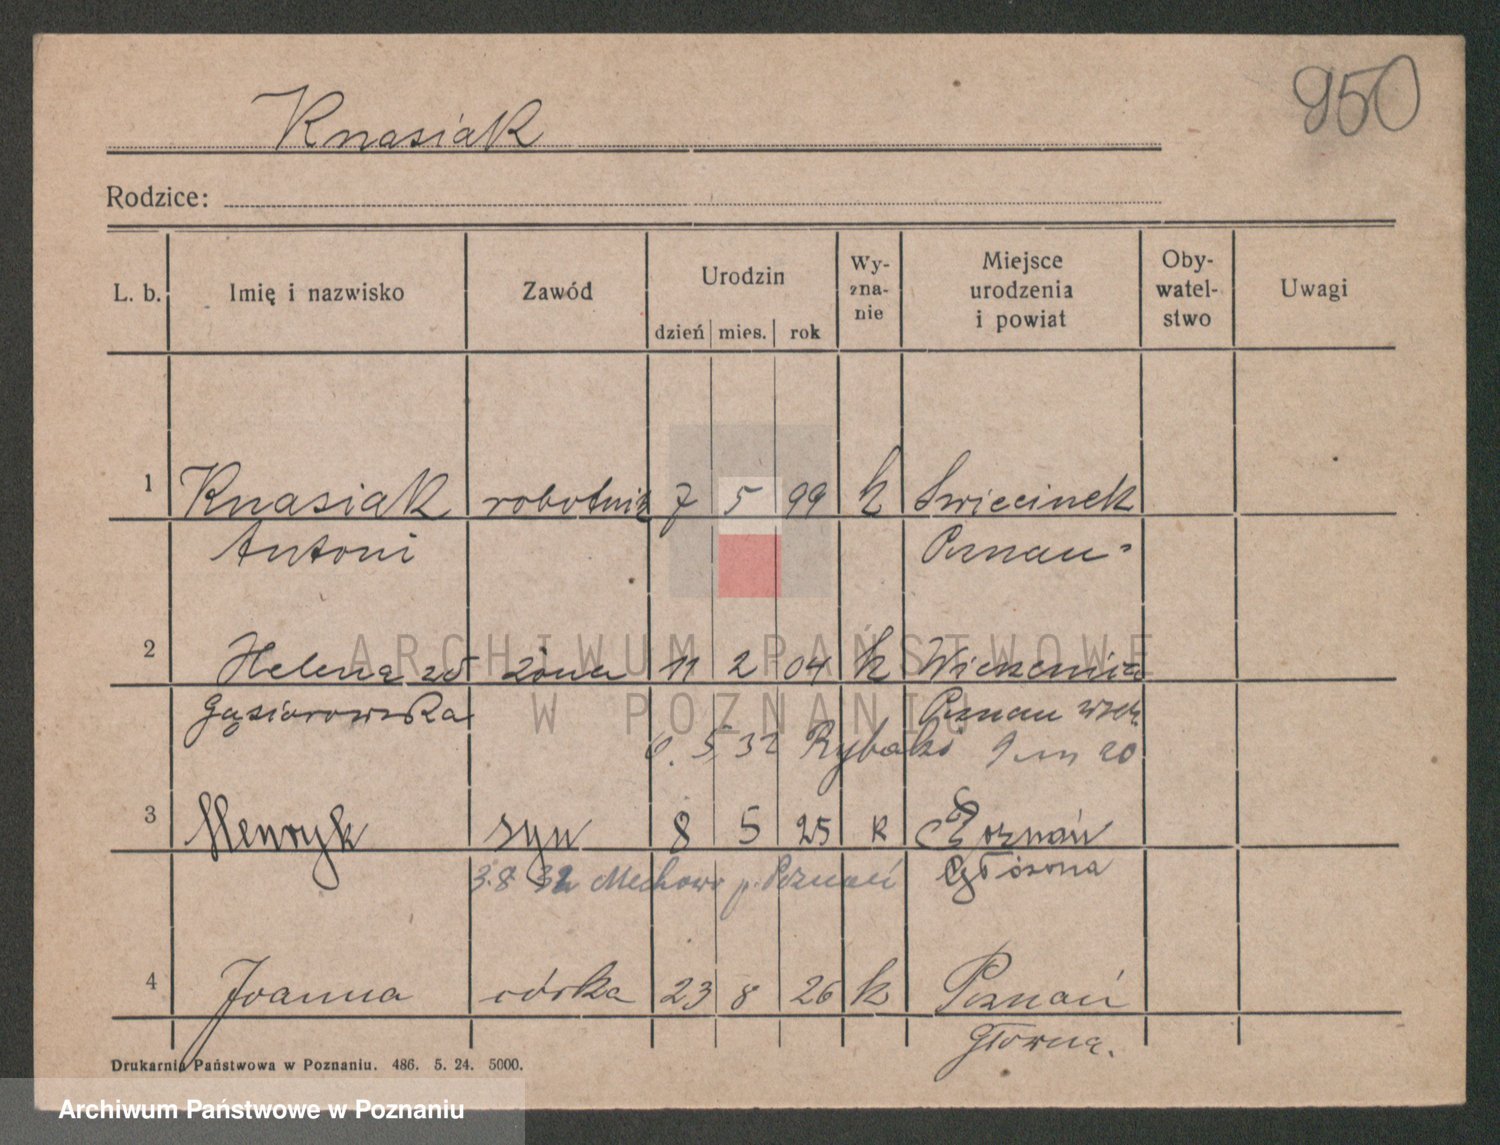 950
Knasiak
Rodzice:
L. b. Imię i nazwisko Zawód Urodzin dzień mies. rok Wy-zna-nie Miejsce urodzenia i powiat Oby-watel-stwo Uwagi
1 Knasiak robotnik 7 5 99 k Swięcinek
Antoni Poznań
2 Helena zd żona 11 2 04 k
Gąsiorowska Poznan wsch.
5 32 Rybaki 9 m 20
3 Henryk syn 8 5 25 k Poznań
3.8 32 Mechowo p. Poznań
4 Joanna córka 23 8 26 k Poznań
Główna.
Drukarnia Państwowa w Poznaniu. 486. 5. 24. 5000.
ARCHIWUM PAŃSTWOWE
W POZNANIU
Archiwum Państwowe w Poznaniu